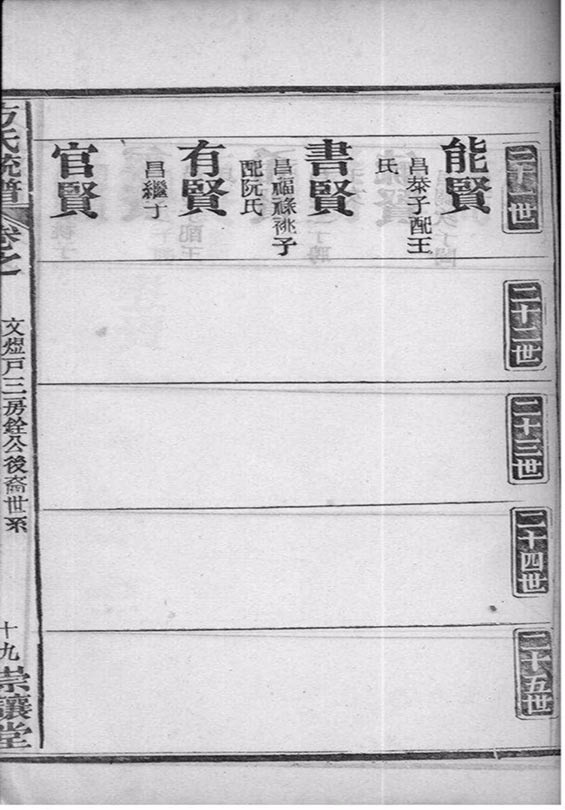 二十一世
能賢
昌泰子配王
氏
書賢
昌福祿祧子
配阮氏
有賢
昌繼子
官賢
二十二世
二十三世
二十四世
二十五世
方氏統譜
卷之
文煜戶三房銓公後裔世系
十九
崇讓堂